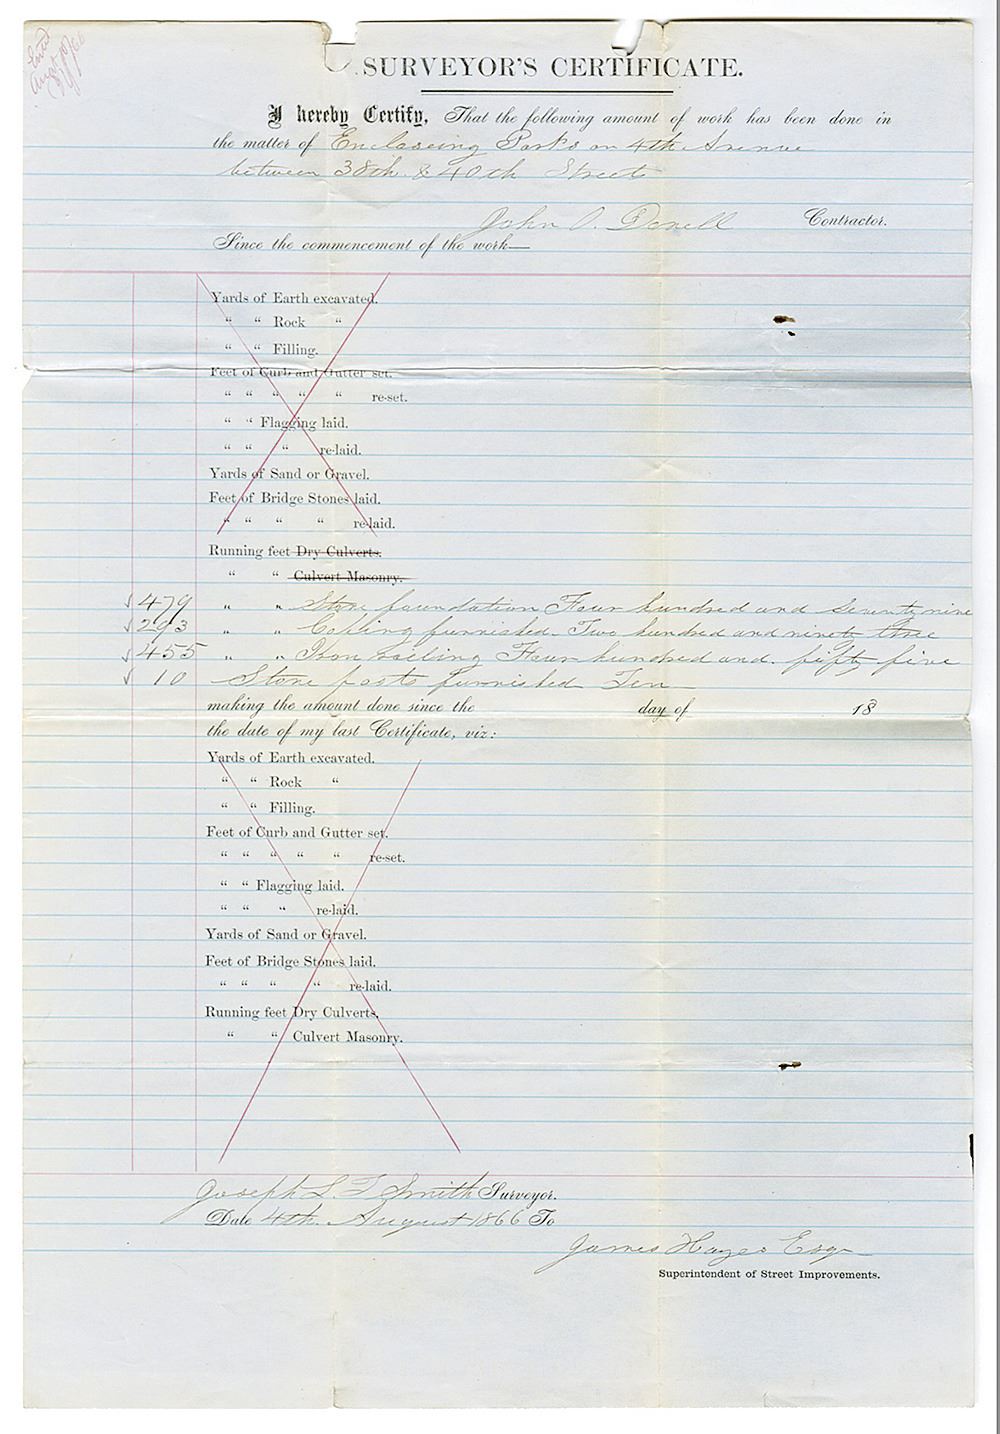 Entd
Augt 10/66
SURVEYOR'S CERTIFICATE.
I hereby Certify, That the following amount of work has been done in
the matter of Encloseing Parks on 4th Avenue
between 38th & 40th Streets
John O. Donell Contractor.
Since the commencement of the work—
Yards of Earth excavated.
" " Rock "
" " Filling.
Feet of Curb and Gutter set.
" " " " " re-set.
" " Flagging laid.
" " " re-laid.
Yards of Sand or Gravel.
Feet of Bridge Stones laid.
" " " " re-laid.
Running feet Dry Culverts.
" " Culvert Masonry.
479 " " Stone foundation Four hundred and seventy nine
293 " " Copling furnished. Two hundred and ninety three
455 " " Iron Raeling Four hundred and fifty five
10 Stone posts furnished Ten
making the amount done since the day of 18
the date of my last Certificate, viz:
Yards of Earth excavated.
" " Rock "
" " Filling.
Feet of Curb and Gutter set.
" " " " " re-set.
" " Flagging laid.
" " " re-laid.
Yards of Sand or Gravel.
Feet of Bridge Stones laid.
" " " " re-laid.
Running feet Dry Culverts.
" " Culvert Masonry.
Joseph L. T. Smith Surveyor.
Date 4th August 1866 To
James Hayes Esqr
Superintendent of Street Improvements.